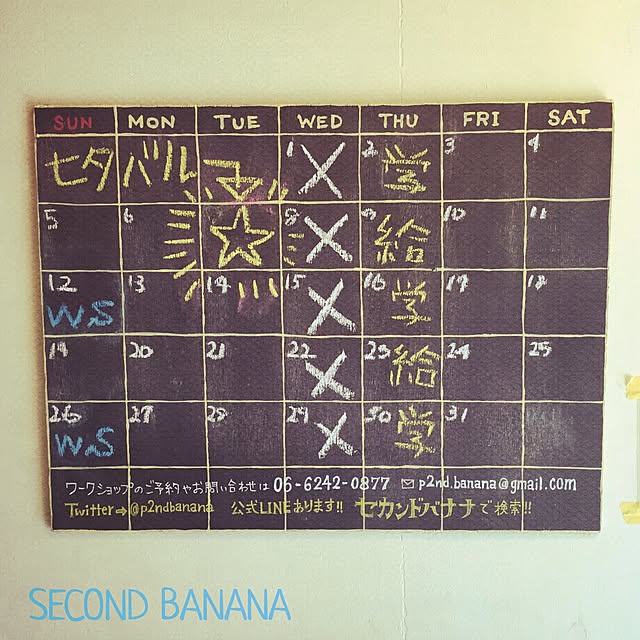 SUN MON TUE WED THU FRI SAT
七夕バル 1 X 2 学 3 4
5 6 ☆ 8 X 9 給 10 11
12 WS 13 14 15 X 16 学 17 18
19 20 21 22 X 23 給 24 25
26 WS 27 28 29 X 30 学 31
ワークショップのご予約やお問い合わせは 06-6242-0877 ✉ p2nd.banana@gmail.com
Twitter⇒@p2ndbanana 公式LINEあります!! セカンドバナナで検索!!
SECOND BANANA